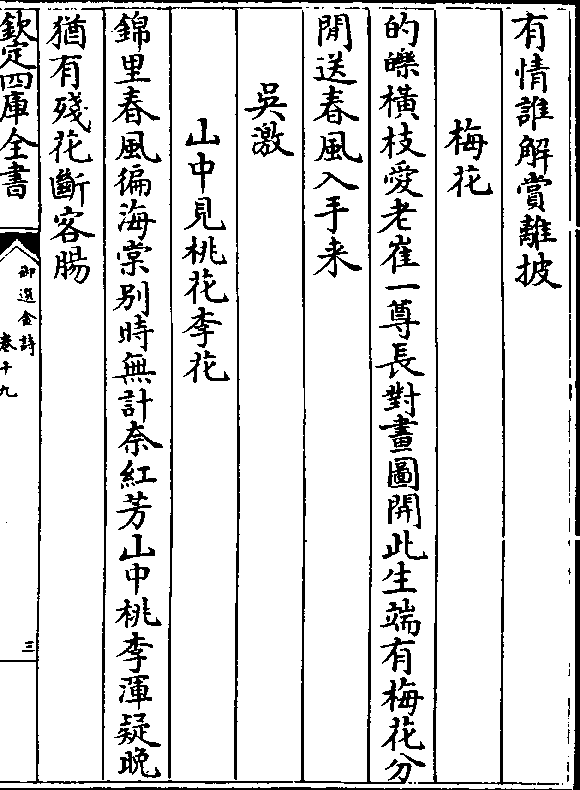 有情誰解賞離披
梅花
的皪橫枝愛老崔一尊長對畫圖開此生端有梅花分
閒送春風入手来
吳激
山中見桃花李花
錦里春風徧海棠别時無計奈紅芳山中桃李渾疑晚
猶有殘花斷客腸
欽定四庫全書
御選金詩
卷十九
三